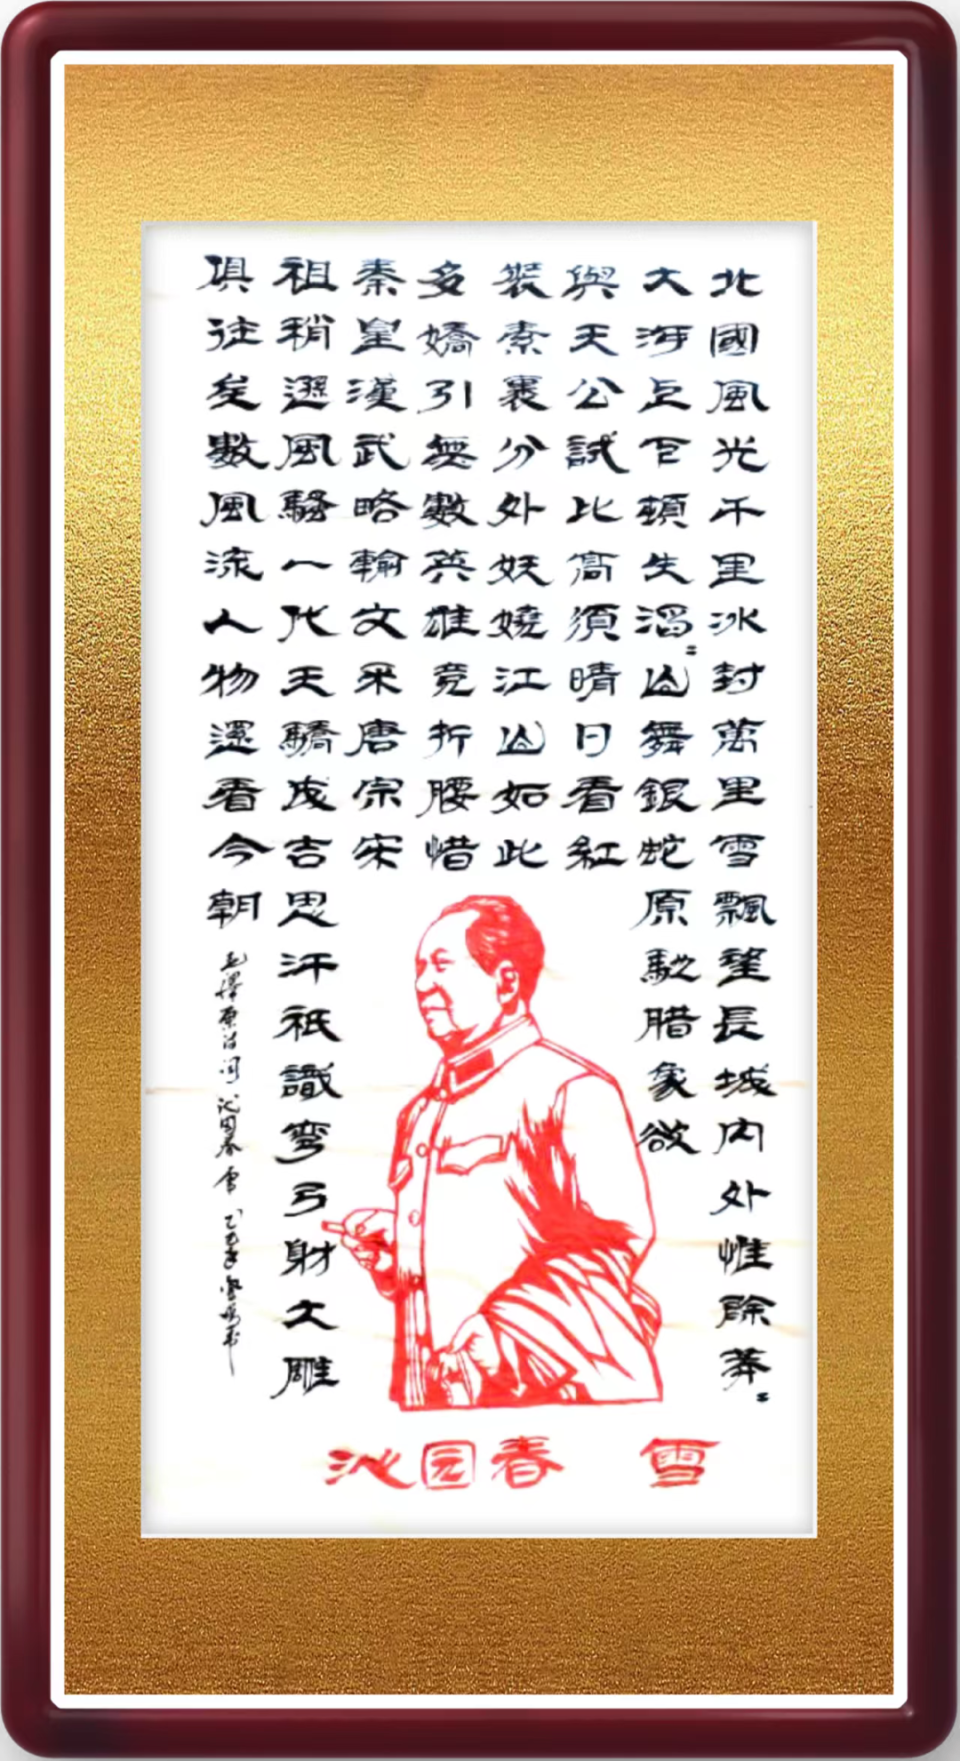 北國風光千里冰封萬里雪飄望長城内外惟餘莽〻
大河上下頓失滔〻山舞銀蛇原馳腊象欲
與天公試比高須晴日看紅
裝素裹分外妖嬈江山如此
多嬌引無數英雄竞折腰惜
秦皇漢武略輸文采唐宗宋
祖稍遜風騷一代天驕成吉思汗祇識弯弓射大雕
俱往矣數風流人物還看今朝
毛澤东诗词 沁园春 雪
沁园春 雪